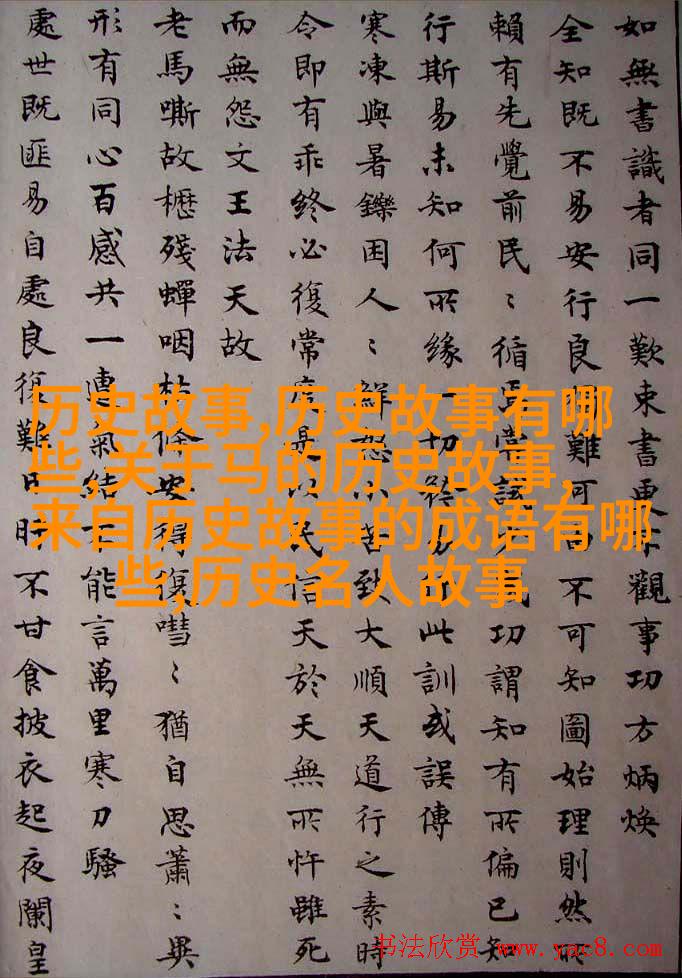 历史故事,历史故事有哪
些,关于马的历史故事,
来自历史故事的成语有哪
些,历史名人故事
如無書識者同一歎束書更不觀事功方炳煥
全知既不易安行良獨難可曰不可知圖始理則然所
賴有先覺前民〻循常識功謂知有所偏已知
行斯易未知何所緣一切易此訓或誤傳
寒凍與暑鑠困人〻鮮怨小苦致大順天道行之素時
令即有乖終必復常度是以民信天於天無所忤雖死
而無怨文王法天故
老馬嘶故櫪殘蟬咽枯條安得復嘒〻猶自思蕭〻異
形有同心百感共一遭氣結不能言萬里寒刀騷
處世既匪易自處良復難日旰不甘食披衣起夜闌皇
书法欣赏 www.yac8.com